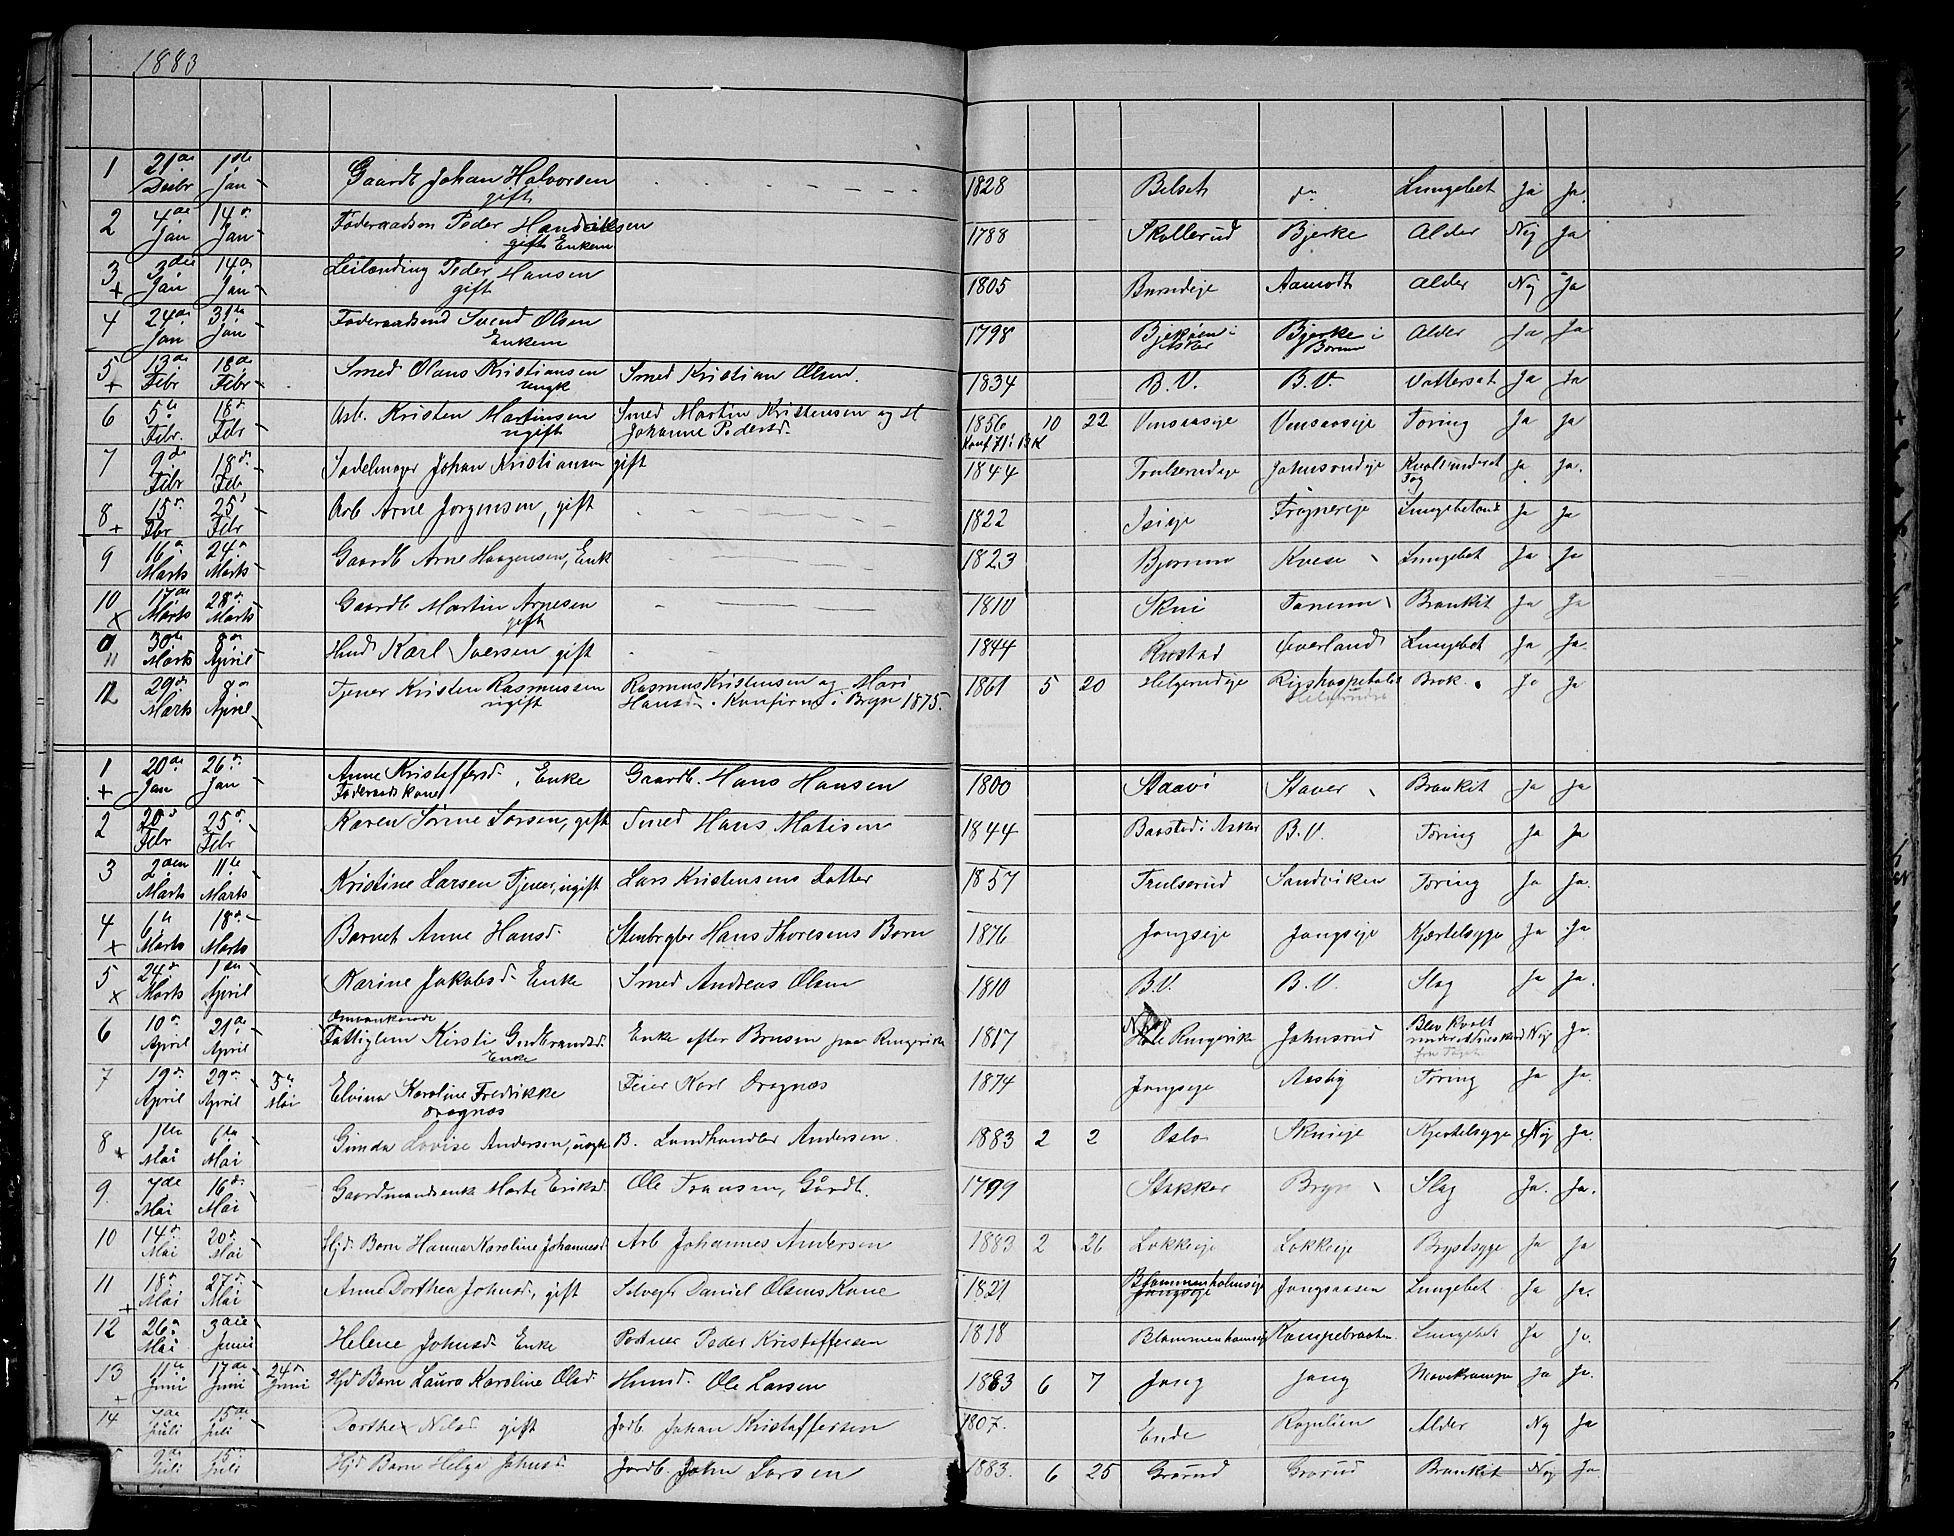 1883
1 21de Decbr 1ste Jan Gaardb Johan Halvorsen gift 1828 Belset do Lungebet Ja Ja.
2 4de Jan 14de Jan Føderaadsm Peder Hendriksen gift Enkem 1788 Skollerud Bjerke Alder Nej Ja
3 + 3die Jan 14de Jan Leilending Peder Hansen gift 1805 Burudeje Aamodt Alder Nej Ja
4 24de Jan 31te Jan Føderaadsmd Svend Olsen Enkem 1798 Bjerkøen i Asker Bjerke i Bærum Alder Ja Ja
5 + 13de Febr 18de Febr Smed Olaus Kristiansen ungk Smed Kristian Olsen. 1834 B.V. B.V. Vattersot Ja Ja
6 5te Febr. 18de Febr Arb. Kristen Martinsen ugift Smed Martin Kristensen og H Johanne Pedersd. 1856 10 22 Vensaaseje Vensaaseje Tæring Ja Ja
Konf 71 i BK
7 9de Febr 18de Febr Sadelmager Johan Kristiansen gift 1844 Trulserudeje Johnsrudeje Kvalt under et Tog Ja Ja.
8 + 15de Fbr 25de Febr Arb Arne Jørgensen, gift 1822 Isieje Frognereje Lungebetænd Ja Ja
9 16de Marts 24de Marts Gaardb Arne Haagensen, Enk 1823 Bjørum Kvese Lungebet Ja Ja
10 x 17de Marts 28de Marts Gaardb Martin Arnesen gift 1810 Skui Tanum Bronkit Ja Ja
11 30te Marts 8de April Hmd Karl Iversen gift 1844 Rustad Øverland Lungebet Ja Ja.
12 29de Marts 8de April Tjener Kristen Rasmussen ugift Rasmus Kristensen og Mari Hansd. Konfirm i Bryn 1875. 1861 5 20 Helgerudeje Rigshospitalet Brok. Ja Ja
1 + 20de Jan 26de Jan Anne Kristoffersd. Enke Føderaadskone Gaardb. Hans Hansen 1800 Staavi Staver Bronkit Ja Ja
2 20de Febr 25de Febr Karen Sørine Larsen, gift Smed Hans Matisen 1844 Baastad i Asker B.V. Tæring Ja Ja
3 2den Marts 11te Marts Kristine Larsen Tjener, ugift Lars Kristensens Datter 1857 Trulserud Sandviken Tæring Ja Ja.
4 x 6te Marts 18de Marts Barnet Anne Hansd. Stenbryter Hans Thoresens Barn 1876 Jongseje Jongseje Kjertelsyge Ja Ja
5 x 24de Marts 1ste April Karine Jakobsd. Enke Smed Andreas Olsen 1810 B.V. B.V. Slag Ja Ja.
6 10de April 21de April Omvankende Fattiglem Kirsti Gudbrandsd. Enke Enke efter Brusen paa Ringerike 1817 Hole Ringerike Johnsrud Blev kvalt Nej Ja.
7 19de April 29de April 5te Mai Elvina Karoline Fredrikke Dragnæs Feier Karl Dragnæs 1874 Jongseje Aasby Tæring Ja Ja
8 x 1ste Mai 6te Mai Gunda Lovise Andersen, uægte B. Landhandler Andersen. 1883 2 2 Oslo Skuieje Kjertelsyge Nej Ja.
9. 7de Mai 16de Mai Gaardmandsenke Marte Eriksd. Ole Fransen, Gårdb. 1799 Stokker Bryn Slag Ja. Ja.
10 14de Mai 20de Mai Hjd. Barn Hanna Karoline Johannesd Arb Johannes Andersen 1883 2 26 Løkkeeje Løkkeeje Brystsyge Ja Ja
11 + 18de Mai 27de Mai Anne Dorthea Johnsd., gift Selvejer Daniel Olsens Kone 1821 Blommenholmseje Jongsaasen Lungebet Ja Ja.
12 26de Mai 3die Juni Helene Johnsd Enke Portner Peder Kristoffersen 1818 Blommenholmseje Kampebraaten. Lungebet. Ja Ja.
13 11te Juni 17de Juni 24de Juni Hjd Barn Laura Karoline Olsd. Husmd. Ole Larsen 1883 6 7 Jong Jong Mavekrampe Ja Ja.
14 7de Juli 15de Juli Dorthea Nilsd gift Jordb. Johan Kristoffersen 1807. Ende Rognlien Alder Nej Ja
9de Juli 15de Juli Hjd Barn Helga Johnsd. Jordb. John Larsen 1883. 6 25 Grorud Grorud Bronkit Nej Ja.